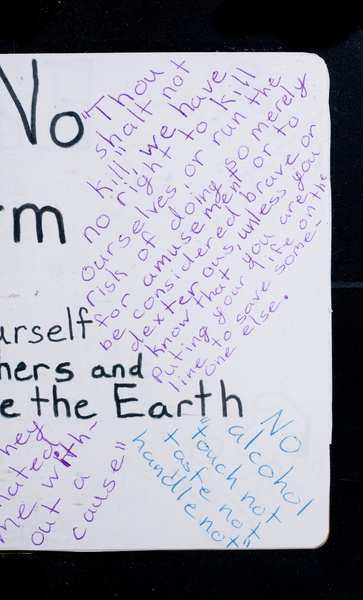 No
rm
urself
hers and
e the Earth
"Thou
shalt not
kill", we have
no right to kill
ourselves or run the
risk of doing so merely
for amusement or to
be considered brave or
dexterous, unless you
know that you are
Puting your life on the
line to save some-
one else.
hey
hated
me with-
out a
cause"
No
alcohol
"touch not
taste not
handle not"